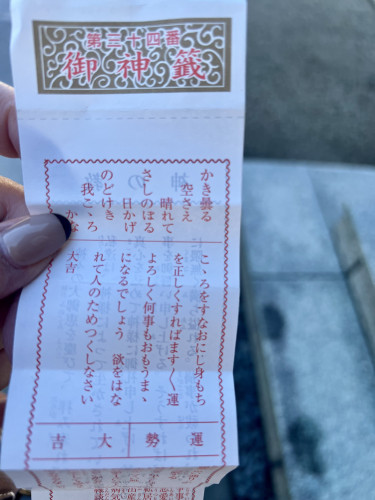 第三十四番
御神籤
かき曇る
空さえ
晴れて
さしのぼる
日かげ
のどけき
我こゝろ
かな
こゝろをすなおにし身もち
を正しくすればます〱運
よろしく何事もおもうまゝ
になるでしょう 欲をはな
れて人のためつくしなさい
大吉
運勢大吉